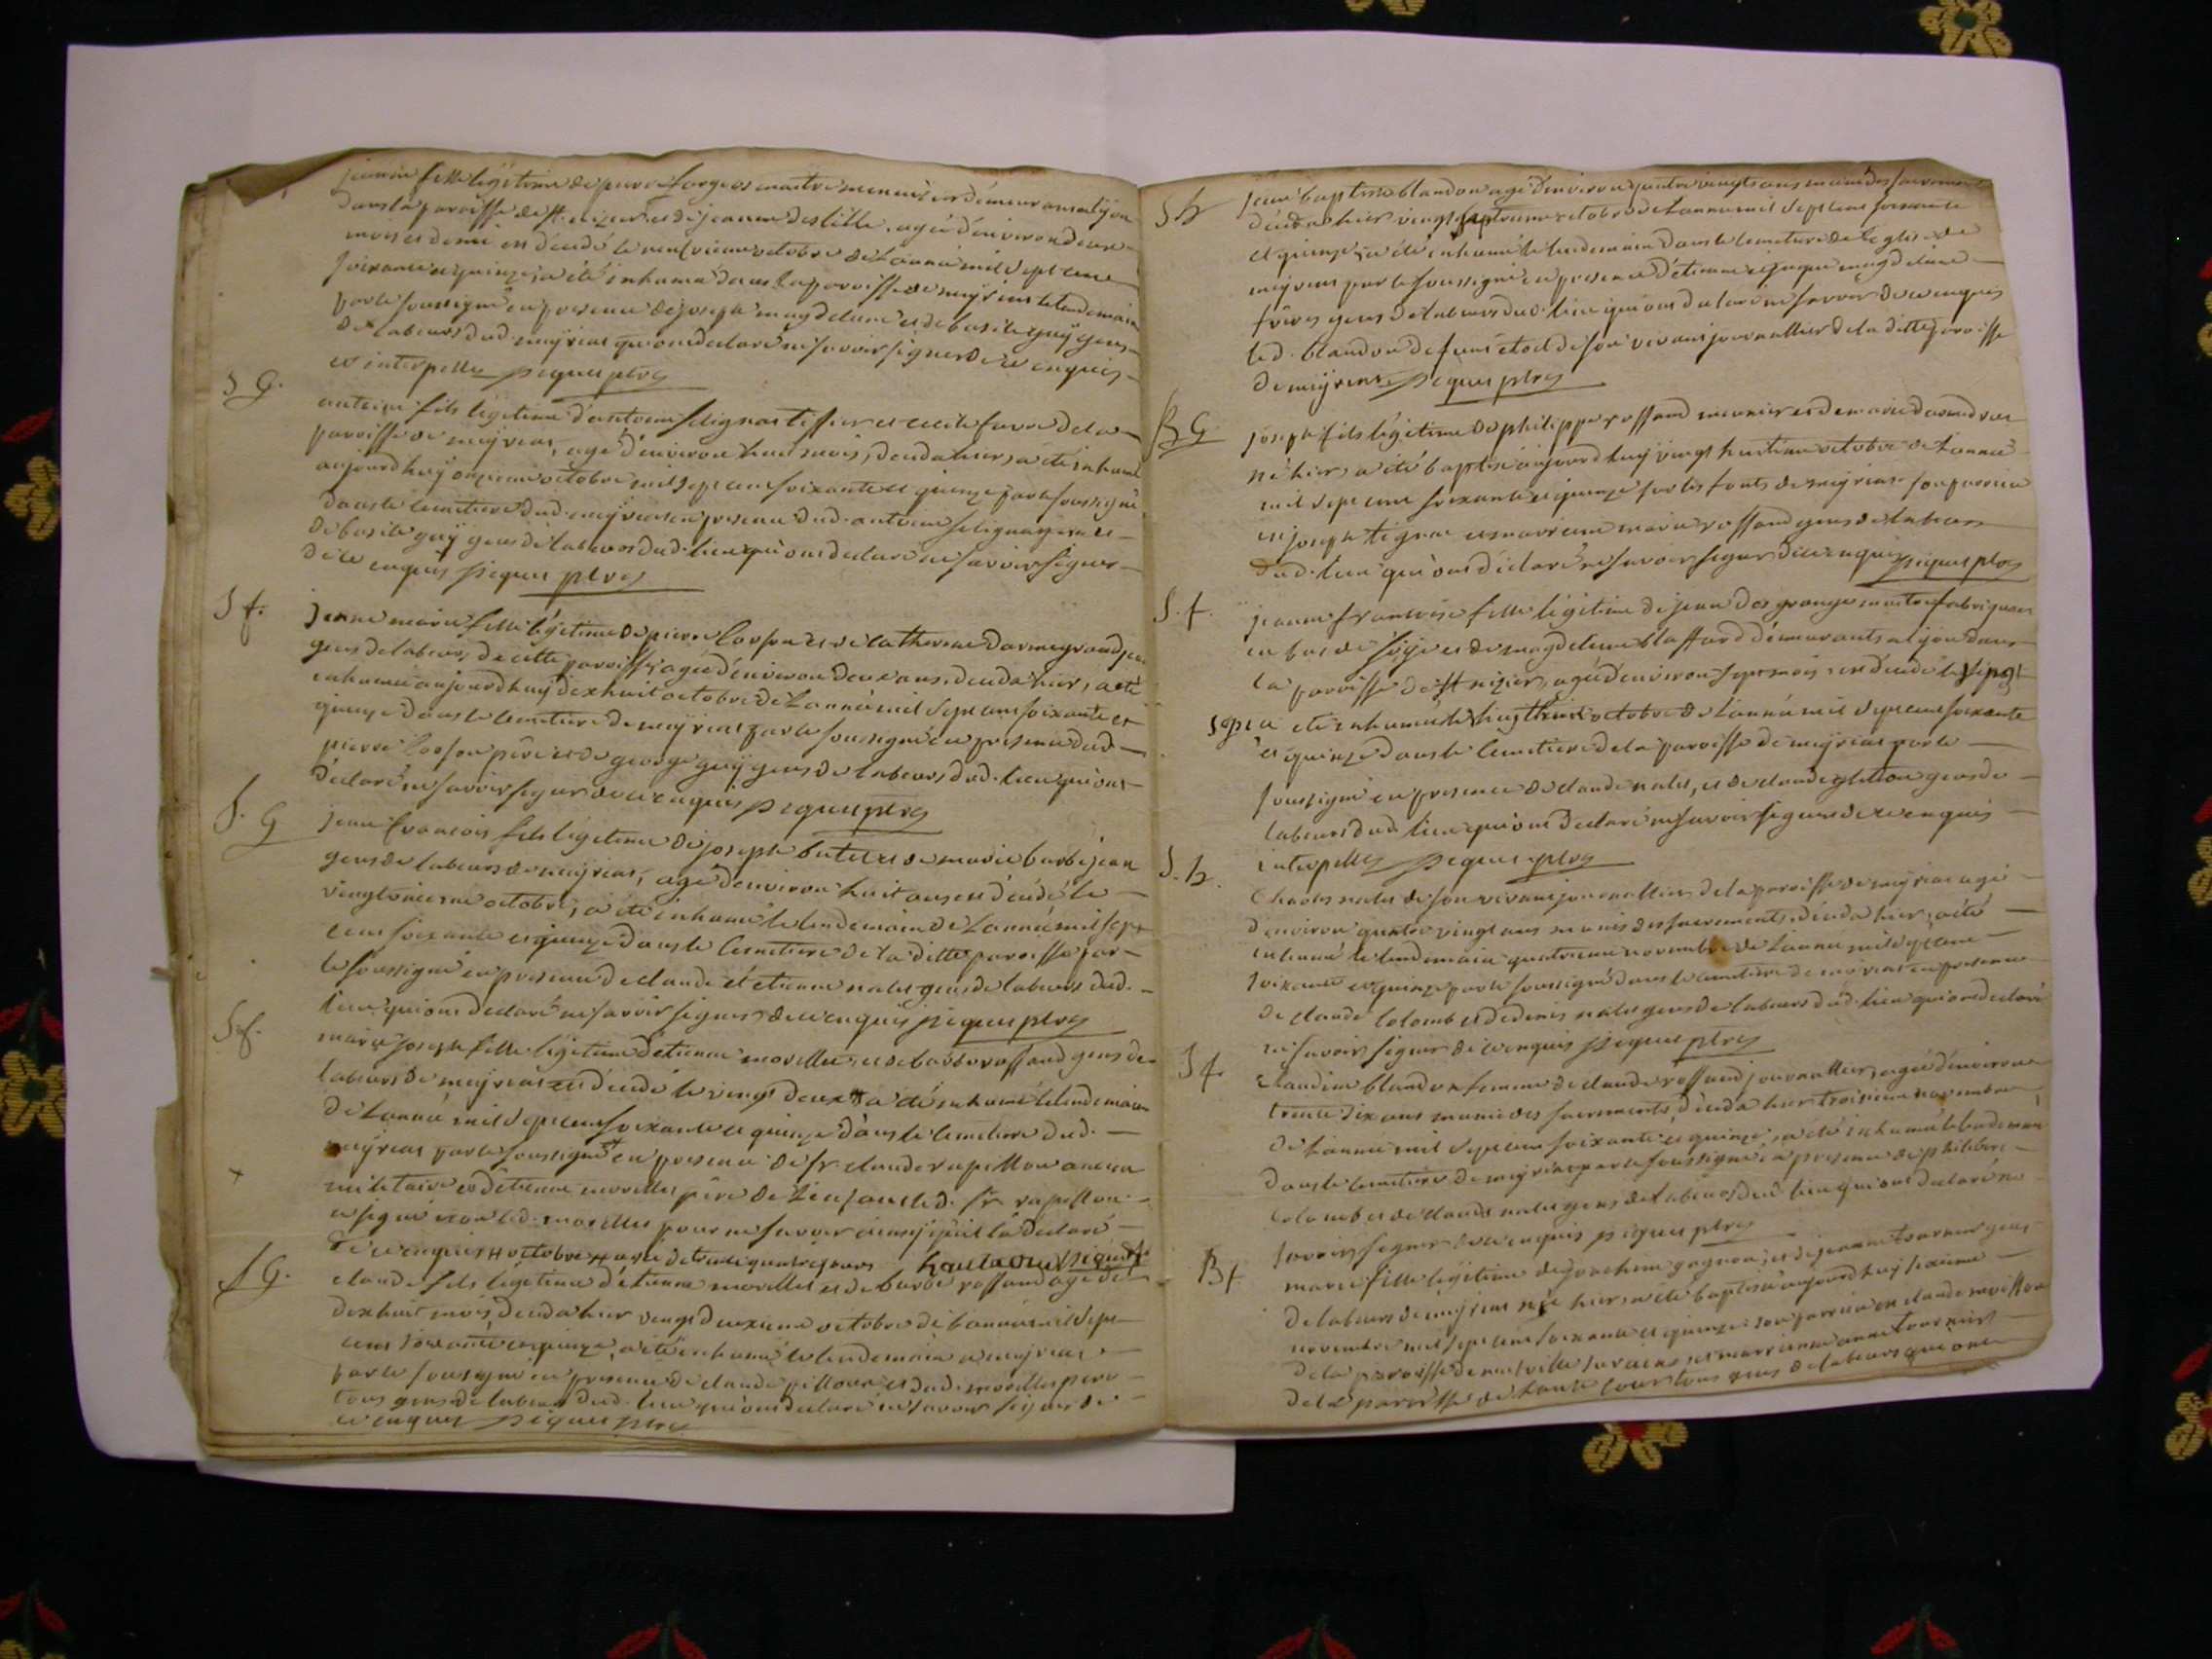 jeanne fille légitime de pierre forgeos maitre menuisier demeurans a lyon
dans la paroisse de st. nizier et de jeanne deslille, agée d'environ deux
mois et demi est décédé le neufvieme octobre de L'année mil sept cens
soixante et quinze, a été inhumé dans la paroisse de meyrias le lendemain
par le soussigné en presence de joseph magdelaine et de basile guÿ gens
de Labeurs dud. meyrias qui ont declaré ne savoir signer de ce enquis
et interpellés piquet ptre
S G.
antoine fils légitime d'antoine selignat tissier et cecile favre de la
paroisse de meyrias, agé d'environ huit mois, décédé hier, a été inhumé
aujourd'huy onzieme octobre mil sept cens soixante et quinze par le soussigné
dans le cemetiere dud. meyrias en presence dud. antoine selignat pere et
de basile guÿ gens de Labeurs dud. lieu qui ont declaré ne savoir signer
de ce enquis piquet ptre
S f.
Jeanne marie fille légitime de pierre Corson et de Catherine Darmegrandjean
gens de labeurs de cette paroisse, agée d'environ deux ans, décédé hier, a été
inhumée aujourd'huy dix huit octobre de L'année mil sept cens soixante et
quinze dans le cemetiere de meyrias par le soussigné en presence dud.
pierre Corson père et de george guÿ gens de labeurs dud. lieu qui ont
déclaré ne savoir signer de ce enquis piquet ptre
S. G
jean françois fils légitime de joseph butet et de marie barbe jean
gens de labeurs de meyrias, agé d'environ huit ans est décédé le
vingtonieme octobre, a été inhumé le lendemain de L'année mil sept
cens soixante et quinze dans le cemetiere de la ditte paroisse par
le soussigné en presence de claude et étienne nalet gens de labeurs dud.
lieu qui ont declaré ne savoir signer de ce enquis piquet ptre
S f.
marie joseph fille légitime d'etienne morellet et de barbe rossand gens de
labeurs de meyrias est décédé le vingt deux H a été inhumé le lendemain
de L'année mil sept cens soixante et quinze dans le cemetiere dud.
meyrias par le soussigné en presence de sr. claude rapillon ancien
militaire et d'etienne morellet père de l'enfant led. sr. rapillon
+
a signé non led. morellet pour ne savoir ainsi qu'il l'a déclaré
de ce enquis H octobre H agée de trente quatre jours piquet ptre
S G.
claude fils légitime d'étienne morellet et de barbe rossand agé de
dix huit mois décédé hier vingt deuxieme octobre de L'année mil sept
cens soixante et quinze, a été inhumé le lendemain a meyrias
par le soussigné en presence de claude pillion et dud. morellet pere
tous gens de labeurs dud. lieu qui ont declaré ne savoir signer de
ce enquis piquet ptre
S h
jean baptiste blandon agé d'environ quatre vingts ans muni des sacremens
décédé hier vingt septieme octobre de L'année mil sept cens soixante
et quinze, a été inhumé le lendemain dans le cemetiere de l'eglise de
meyrias par le soussigné en presence d'étienne et jaque magdelaine
frères gens de labeurs dud. lieu qui ont declaré ne savoir de ce enquis
led. blandon defunt etoit de son vivant journallier de la ditte paroisse
de meyrias, piquet ptre
B G
joseph fils légitime de philippe rossand meunier et de marie
né hier, a été baptisé aujourd'huy vingt huitieme octobre de L'année
mil sept cens soixante et quinze sur les fonts de meyrias son parrein
est joseph tignat et marrienne marie rossand gens de labeurs
dud. lieu qui ont déclaré ne savoir signer de ce enquis piquet ptre
S. f.
jeanne françoise fille légitime de jean des granges maitre fabriquant
en bas de soÿe et de magdelaine blaffard demeurants a lyon dans
la paroisse de st nizier, agée d'environ sept mois, est décédé le vingt
sept a été inhumée le vingt huit octobre de L'année mil sept cens soixante
et quinze dans le cemetiere de la paroisse de meyrias par le
soussigné en presence de claude nalet, et de claude gletton gens de
labeurs dud. lieu qui ont declaré ne savoir signer de ce enquis
interpellés piquet ptre
S. h.
Charles nalet de son vivant journallier de la paroisse de meyrias agé
d'environ quatre vingt ans munis des sacrements, décédé hier, a été
inhumé le lendemain quatrieme novembre de L'année mil sept cens
soixante et quinze par le soussigné dans le cemetiere de meyrias en presence
de claude Colomb et de denis nalet gens de labeurs dud. lieu qui ont declaré
ne savoir signer de ce enquis piquet ptre
S f.
claudine blandon femme de claude rossand journallier, agée d'environ
trente six ans munie des sacrements, décédé hier troisieme novembre
de L'année mil sept cens soixante et quinze, a été inhumé le lendemain
dans le cemetiere de meyrias par le soussigné en presence de philibert
Colomb et de claude nalet gens de labeurs dud. lieu qui ont declaré ne
savoir signer de ce enquis piquet ptre
B f.
marie fille légitime de joachim gagnon, et de jeanne tournier gens
de labeurs de meyrias née hier, a été baptisée aujourd'huy sixieme
novembre mil sept cens soixante et quinze son parrein est claude moisson
de la paroisse de neufville sur ains et marrienne anne tournier
de la paroisse de haute cour tous gens de labeurs qui ont